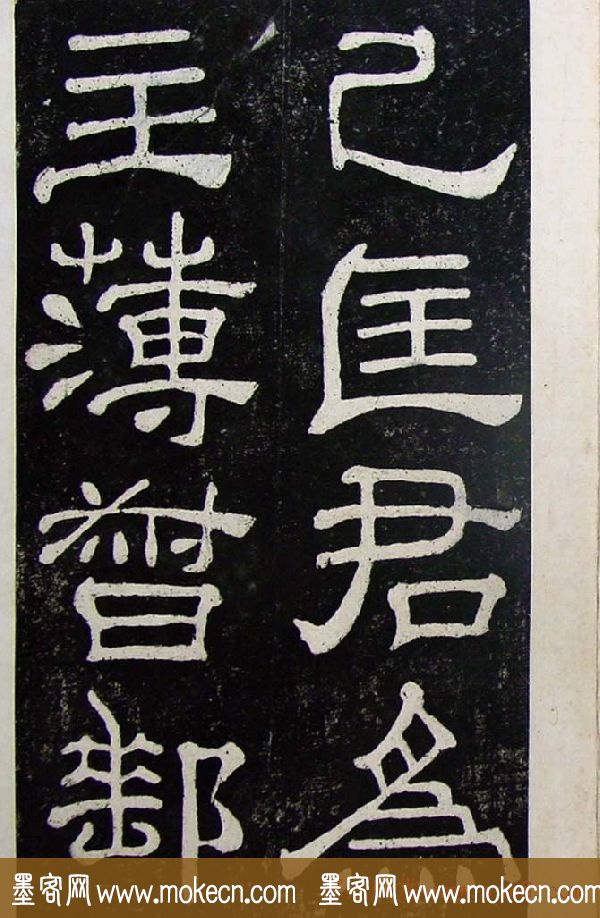 己匡君為
主薄督郵
墨客网 www.mokecn.com 墨客网 www.mokecn.com